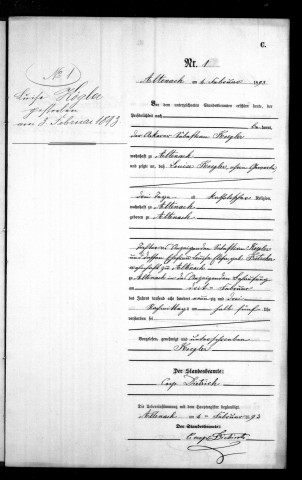 C.
Nr. 1
No 1
Louise Kögler
gestorben
am 3. Februar 1893
Altenach am 4. Februar 1893.
Vor dem unterzeichneten Standesbeamten erschien heute, der
Persönlichkeit nach
kannt,
der Ackerer Sebastian Koegler
wohnhaft zu Altenach
und zeigte an, daß Louise Koegler, ohne Gewerbe
drei Tage alt, katholischer Religion,
wohnhaft zu Altenach
geboren zu Altenach
Tochter des Anzeigenden Sebastian Koegler
und dessen Ehefrau
wohnhaft zu Altenach
zu Altenach in des Anzeigenden Behausung
am drei Februar
des Jahres tausend acht hundert neunzig und drei
Nachmittags um halb fünf Uhr
verstorben sei
Vorgelesen, genehmigt und unterschrieben
Koegler
Der Standesbeamte:
Dietrich
Die Uebereinstimmung mit dem Hauptregister beglaubigt
Altenach am 4. Februar 1893
Der Standesbeamte: